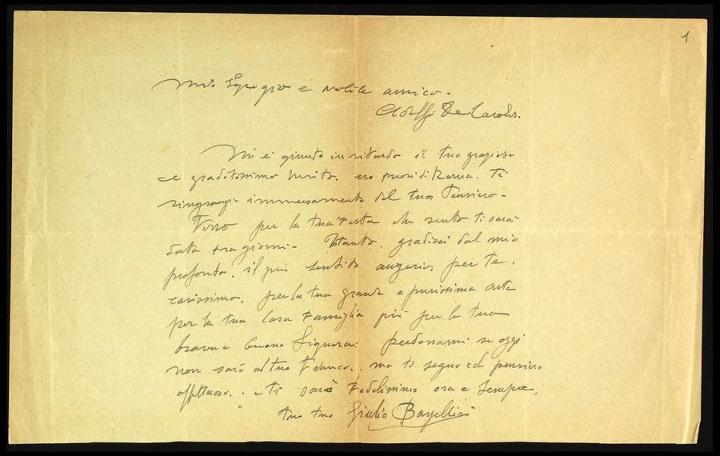 1
Mio Egregio e nobile amico.
Adolfo De Carolis.
Mi è giunto in ritardo il tuo grazioso
e graditissimo invito. ero fuori di Roma. Ti
ringrazio immensamente del tuo Pensiero.
Verrò per la tua Festa che sento ti sarà
data tra giorni. Intanto, gradisci dal mio
profondo, il più sentito augurio, per te,
carissimo, per la tua grande e purissima arte
per la tua cara Famiglia più per la tua
brava e buona Signora. perdonami se oggi
non sarò al tuo Fianco.. ma ti seguo col pensiero
affettuoso.. e ti sarà Fedelissimo ora e sempre,
tuo tuo Giulio Bargellini